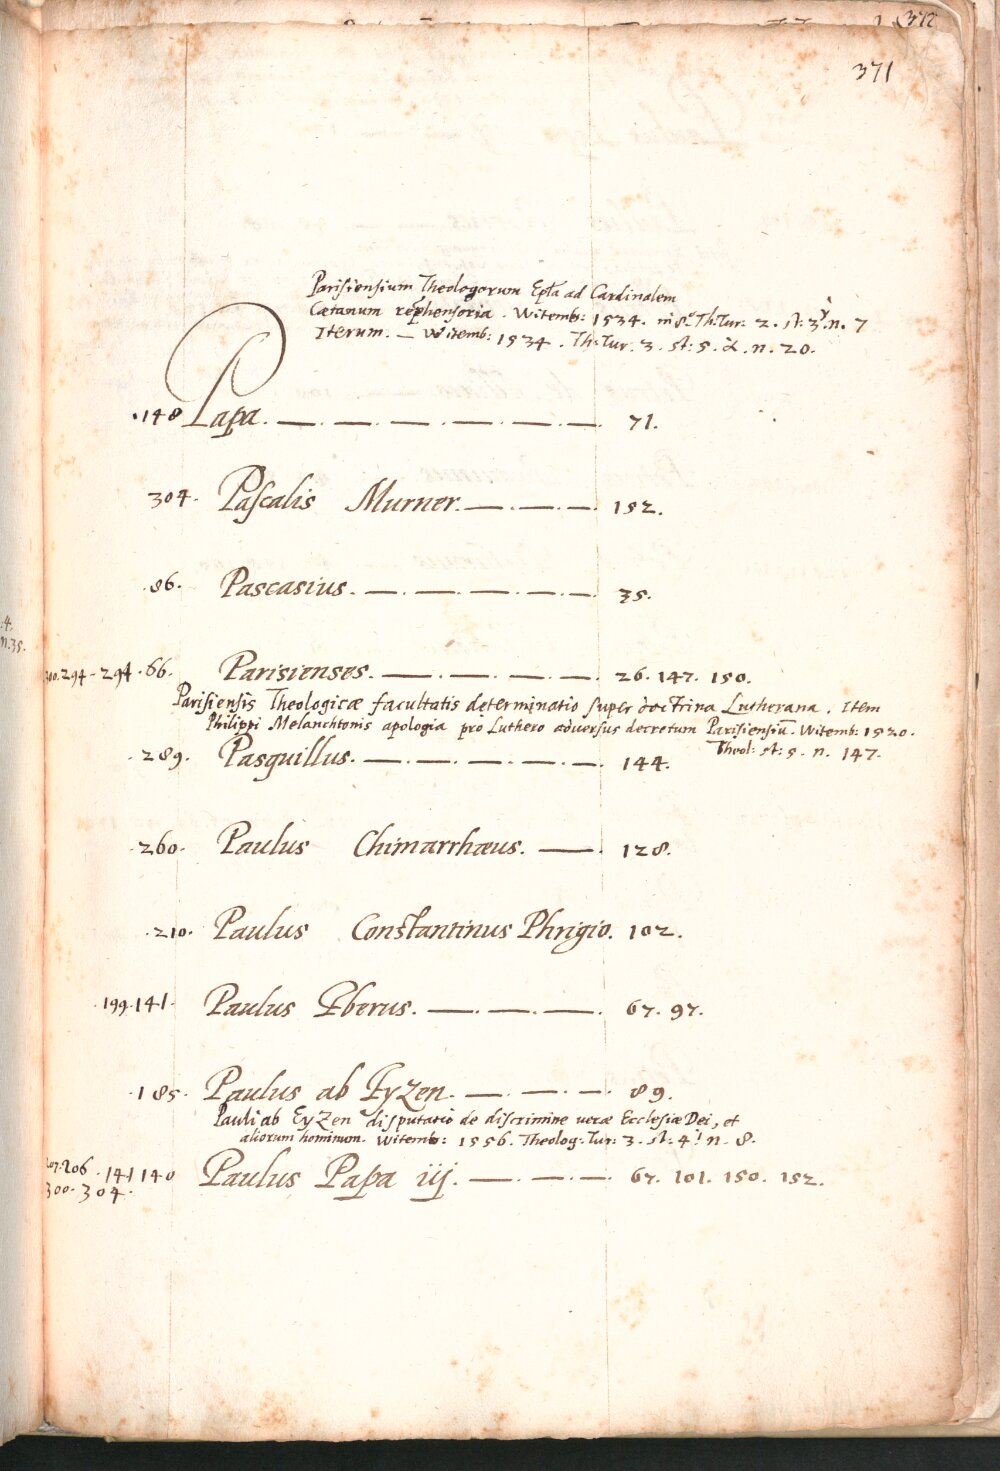 372
371
Parisiensium Theologorum Epła ad Cardinalem
Cætanum rephensoria. Witemb: 1534. in 8º Th: Tur: 2. st: 3. n. 7
Iterum. — Witemb: 1534. Th: Tur. 3. st: 5. à. n. 20.
.148 Papa. — . — . — . — . — . — . 71.
304. Pascalis Murner. — . — . — . 152.
.86. Pascasius. — . — . — . — . 35.
4.
n. 35.
300. 294 - 294 . 66. Parisienses. — . — . — . — . 26. 147. 150.
Parisiensis Theologicæ facultatis determinatio super doctrina Lutherana. Item
Philippi Melanchtonis apologia pro Luthero adversus decretum Parisiensiū. Witemb: 1520.
Theol: st: 5. n. 147.
.289. Pasquillus. — . — . — . — . 144.
.260. Paulus Chimarrhæus. — . 128.
.210. Paulus Constantinus Phrigio. 102.
.199.141. Paulus Eberus. — . — . — . 67. 97.
.185. Paulus ab Eyzen. — . — . — . 89.
Pauli ab Eyzen disputatio de discrimine veræ Ecclesiæ Dei, et
aliorum hominum. Witemb: 1556. Theolog: Tur: 3. st: 4. n. 8.
207. 206 . 141 140 Paulus Papa iij. — . — . — . 67. 101. 150. 152.
300. 304.